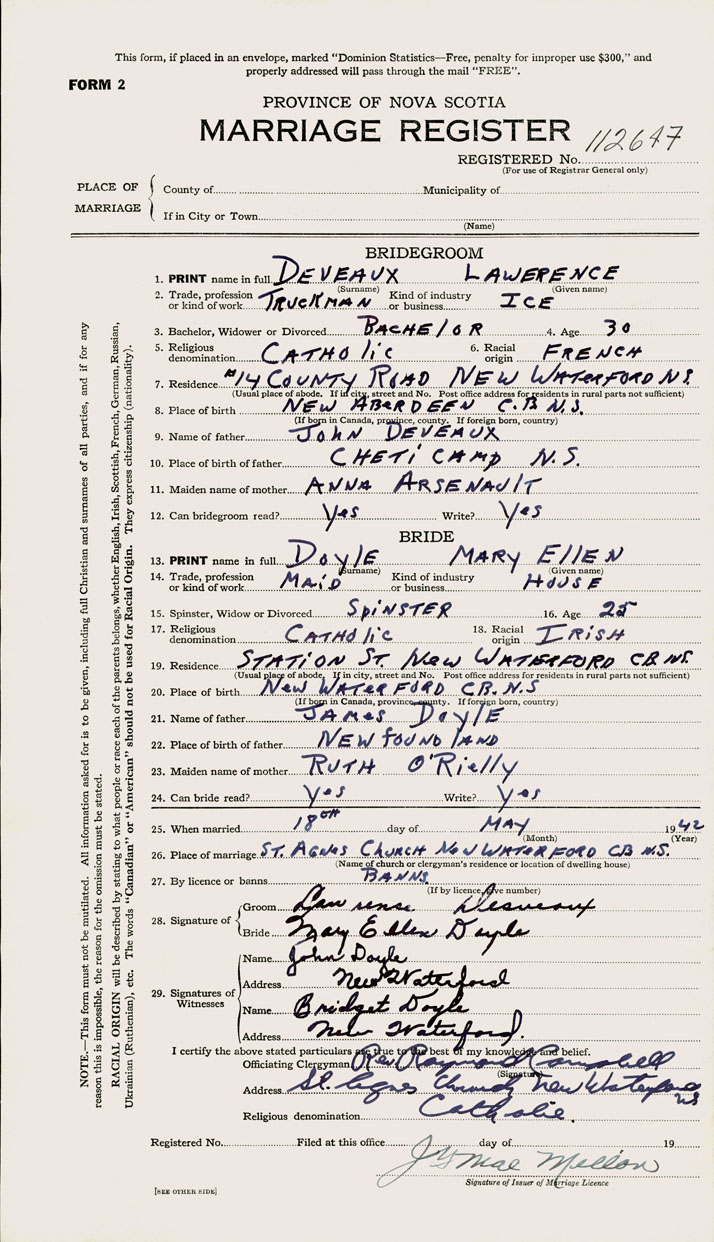 This form, if placed in an envelope, marked "Dominion Statistics—Free, penalty for improper use $300," and
properly addressed will pass through the mail "FREE".
FORM 2
PROVINCE OF NOVA SCOTIA
MARRIAGE REGISTER
112647
REGISTERED No.
(For use of Registrar General only)
PLACE OF MARRIAGE
County of Municipality of
If in City or Town
(Name)
BRIDEGROOM
1. PRINT name in full DEVEAUX LAWERENCE
(Surname) (Given name)
2. Trade, profession or kind of work TRUCKMAN Kind of industry or business ICE
3. Bachelor, Widower or Divorced BACHELOR 4. Age 30
5. Religious denomination CATHOLIC 6. Racial origin FRENCH
7. Residence #14 COUNTY ROAD NEW WATERFORD N.S.
(Usual place of abode. If in city, street and No. Post office address for residents in rural parts not sufficient)
8. Place of birth NEW ABERDEEN C.B N.S.
(If born in Canada, province, county. If foreign born, country)
9. Name of father JOHN DEVEAUX
10. Place of birth of father CHETI CAMP N.S.
11. Maiden name of mother ANNA ARSENAULT
12. Can bridegroom read? Yes Write? Yes
BRIDE
13. PRINT name in full DOYLE MARY ELLEN
(Surname) (Given name)
14. Trade, profession or kind of work MAID Kind of industry or business HOUSE
15. Spinster, Widow or Divorced SPINSTER 16. Age 25
17. Religious denomination CATHOLIC 18. Racial origin IRISH
19. Residence STATION ST. NEW WATERFORD CB. NS.
(Usual place of abode. If in city, street and No. Post office address for residents in rural parts not sufficient)
20. Place of birth NEW WATERFORD CB. N.S
(If born in Canada, province, county. If foreign born, country)
21. Name of father JAMES DOYLE
22. Place of birth of father NEWFOUNDLAND
23. Maiden name of mother RUTH O'RIELLY
24. Can bride read? Yes Write? Yes
25. When married 18th day of MAY 1942
(Month) (Year)
26. Place of marriage ST. AGNES CHURCH NEW WATERFORD CB N.S.
(Name of church or clergyman's residence or location of dwelling house)
27. By licence or banns BANNS
(If by licence, give number)
28. Signature of
Groom Lawrense Desveaux
Bride Mary Ellen Doyle
29. Signatures of Witnesses
Name John Doyle
Address New Waterford
Name Bridget Doyle
Address New Waterford.
I certify the above stated particulars are true to the best of my knowledge and belief.
Officiating Clergyman Rev Raymond Campbell
(Signature)
Address St. Agnes Church New Waterford NS
Religious denomination Catholic.
Registered No. Filed at this office day of 19
J G Mac Mellon
Signature of Issuer of Marriage Licence
[SEE OTHER SIDE]
NOTE.—This form must not be mutilated. All information asked for is to be given, including full Christian and surnames of all parties, and if for any
reason this is impossible, the reason for the omission must be stated.
RACIAL ORIGIN will be described by stating to what people or race each of the parents belongs, whether English, Irish, Scottish, French, German, Russian,
Ukrainian (Ruthenian), etc. The words "Canadian" or "American" should not be used for Racial Origin. They express citizenship (nationality).